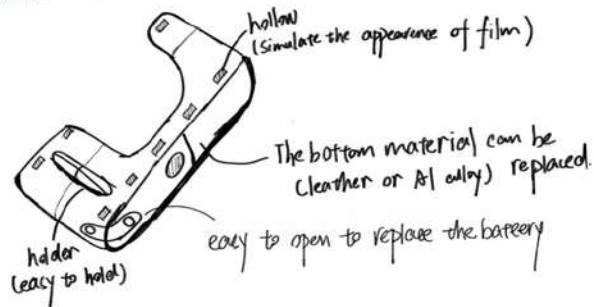 hollow
(simulate the appearence of film)
The bottom material can be
(leather or Al alloy) replaced.
easy to open to replace the battery
holder
(easy to hold)